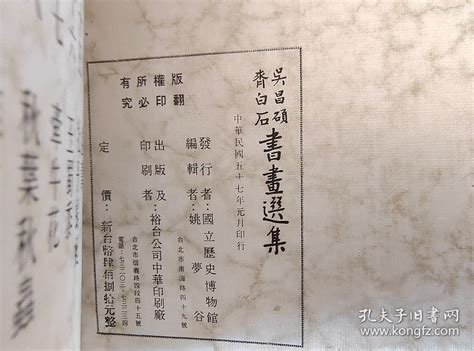 吳昌碩
齊白石
書畫選集
中華民國五十七年元月印行
發行者：國立歷史博物館
台北市南海路四十九號
編輯者：姚夢谷
出版及
印刷者：裕台公司中華印刷廠
台北市信義路四段四十五號
定價：新台幣肆佰捌拾元整
版權所有
翻印必究
孔夫子旧书网
www.kongfz.com